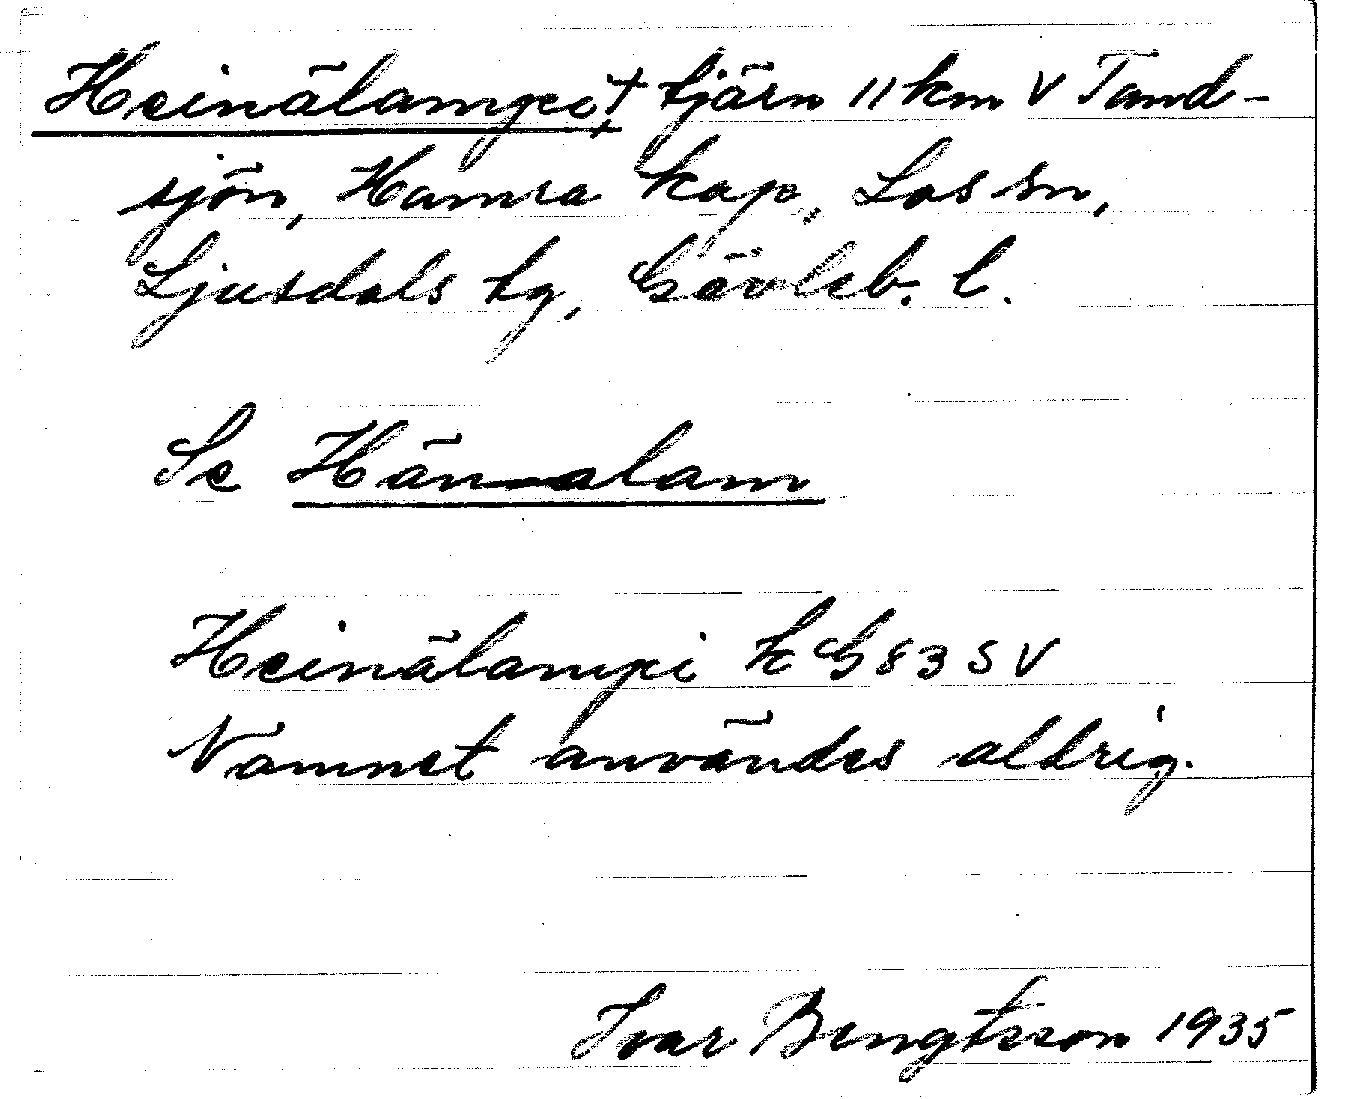 Heinälampi,† tjärn 11 km V Tand-
sjön, Hamra kap, Los sn,
Ljusdals tg, Gävleb. l.
Se Hänalam
Heinälampi k G 83 SV
Namnet användes aldrig.
Ivar Bengtsson 1935